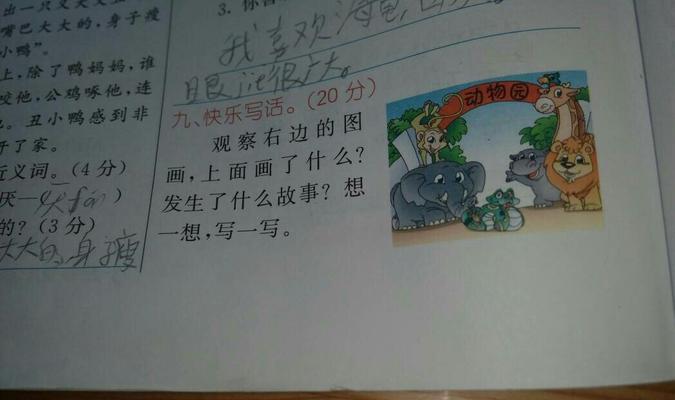 出一只又大又丑的
嘴巴大大的,身子瘦
小鸭”。
上,除了鸭妈妈,谁
咬他,公鸡啄他,连
丑小鸭感到非
开了家。
近义词。(4 分)
厌—( )
的?(3 分)
大大的,身子瘦
3.
我喜欢海龟,
眼jīng很大。
九、快乐写话。(20 分)
观察右边的图
画,上面画了什么?
发生了什么故事?想
一想,写一写。
动物园